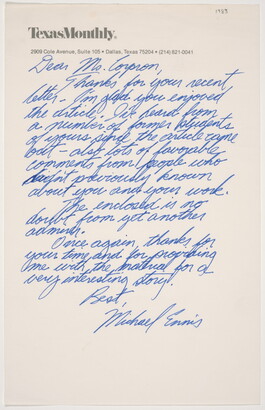 1983
TexasMonthly.
2909 Cole Avenue, Suite 105 • Dallas, Texas 75204 • (214) 821-0041
Dear Mr. Corpron,
Thanks for your recent
letter - I'm glad you enjoyed
the article. I've heard from
a number of former students
of yours since the article came
out - also lots of favorable
comments from people who
hadn't previously known
about you and your work.
The enclosed is no
doubt from yet another
admirer.
Once again, thanks for
your time and for providing
me with the material for a
very interesting story.
Best,
Michael Ennis